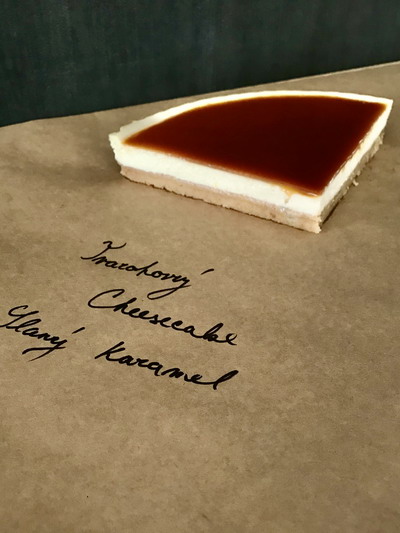 Tvarohový
Cheesecake
Slaný Karamel